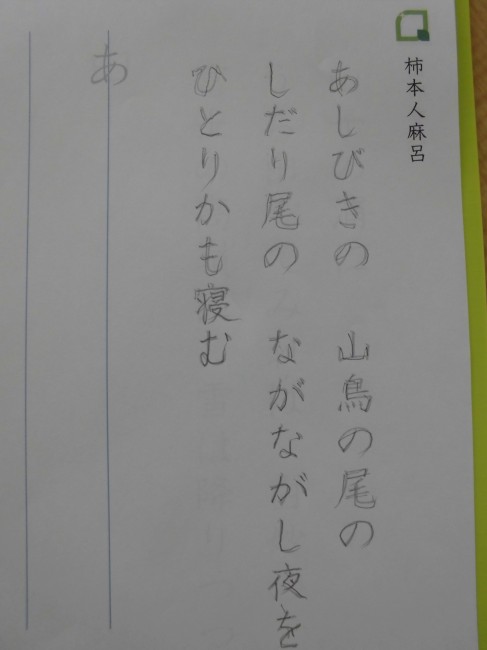 柿本人麻呂
あしびきの　山鳥の尾の
しだり尾の　ながながし夜を
ひとりかも寝む
あ